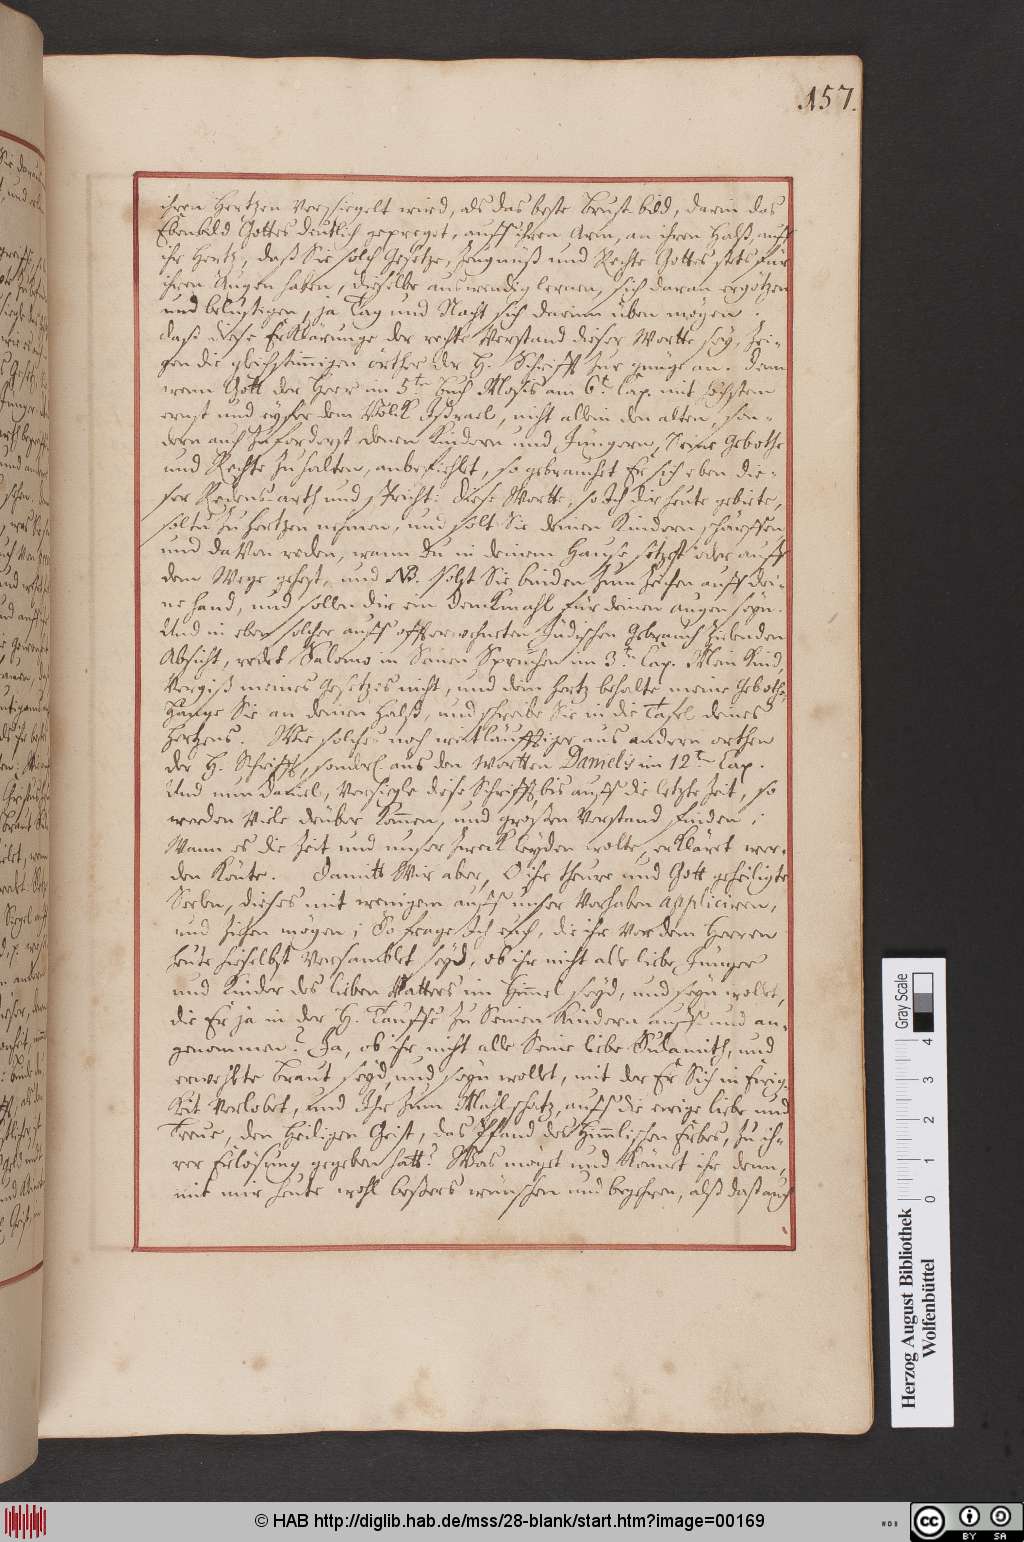 157.
ihren Hertzen versiegelt wird, als das beste Brust bild, darin das
Ebenbild Gottes deutlich gepreget, auff ihren Arm, an ihren Halß, auff
ihr Hertz, daß Sie solch Gesetze, Zeugnüß und Rechte Gottes stets für
ihren Augen haben, dieselbe auswendig lernen, sich daran ergötzen
und belustigen, ja Tag und Nacht sich darinn üben mögen.
Daß diese Erklärunge der rechte Verstand dieser Wortte sey, Zei-
gen die gleichstimmigen örther der H. Schrifft zur gnüge an. Denn
wenn Gott der Herr im 5ten Buch Mosis am 6ten Cap. mit höchstem
ernst und eyfer dem Volck Jsrael, nicht allein den alten, son-
dern auch Zuforderst denen Kindern und Jüngern, Seine Gebothe
und Rechte zu halten, anbefiehlet, so gebrauchet Er sich eben die-
ser Redens-arth und spricht: Diese Wortte, so Ich dir heute gebiete,
soltu zu Hertzen nehmen, und solt Sie deinen Kindern schärffen
und davon reden, wann du in deinem Hause sitzest oder auff
dem Wege gehest, und NB. solst Sie binden zum Zeichen auff dei-
ne Hand, und sollen dir ein Denckmahl für deinen augen seyn.
Und in eben solcher auff offterwehneten Jüdischen Gebrauch Zielenden
Absicht, redet Salomo in Seinen Sprüchen im 3ten Cap. Mein Kind,
Vergiß meines Gesetzes nicht, und dein Hertz behalte meine Gebothe,
Hänge Sie an deinen Halß, und schreibe Sie in die Tafel deines
Hertzens. Wie solches noch weitläufftiger aus andern orthen
der H. Schrifft, sonderl. aus den Wortten Daniels im 12ten Cap.
Und nun Daniel, Versiegle diese Schrifft, bis auff die letzte Zeit, so
werden Viele drüber kommen, und grossen Verstand finden;
Wann es die Zeit und unser Zweck leyden wolte, erkläret wer-
den könte. Damitt Wir aber, O ihr theure und Gott geheiligte
Seelen, dieses mit wenigem auff unser Vorhaben appliciren,
und Ziehen mögen; So frage Ich euch, die ihr Vor dem Herren
heute hieselbst Versamblet seyd, ob ihr nicht alle liebe Jünger
und Kinder des lieben Vatters im Himmel seyd, und seyn wollet,
die Er ja in der H. Tauffe zu Seinen Kindern auff und an-
genommen? Ja, ob ihr nicht alle Seine liebe Sulamith, und
erwehlte Braut seyd, und seyn wollet, mit der Er Sich in Ewig-
keit verlobet, und Ihr zum Mahlschatz, auff die ewige liebe und
Treue, den Heiligen Geist, das Pfand des Himmlischen Erbes, zu ih-
rer Erlösung gegeben hatt? Was möget und könnet ihr denn,
mit mir heute wohl bessers wünschen und begehren, alß daß auch
Gray Scale
0 1 2 3 4
Herzog August Bibliothek
Wolfenbüttel
© HAB http://diglib.hab.de/mss/28-blank/start.htm?image=00169
WDB
CC BY SA